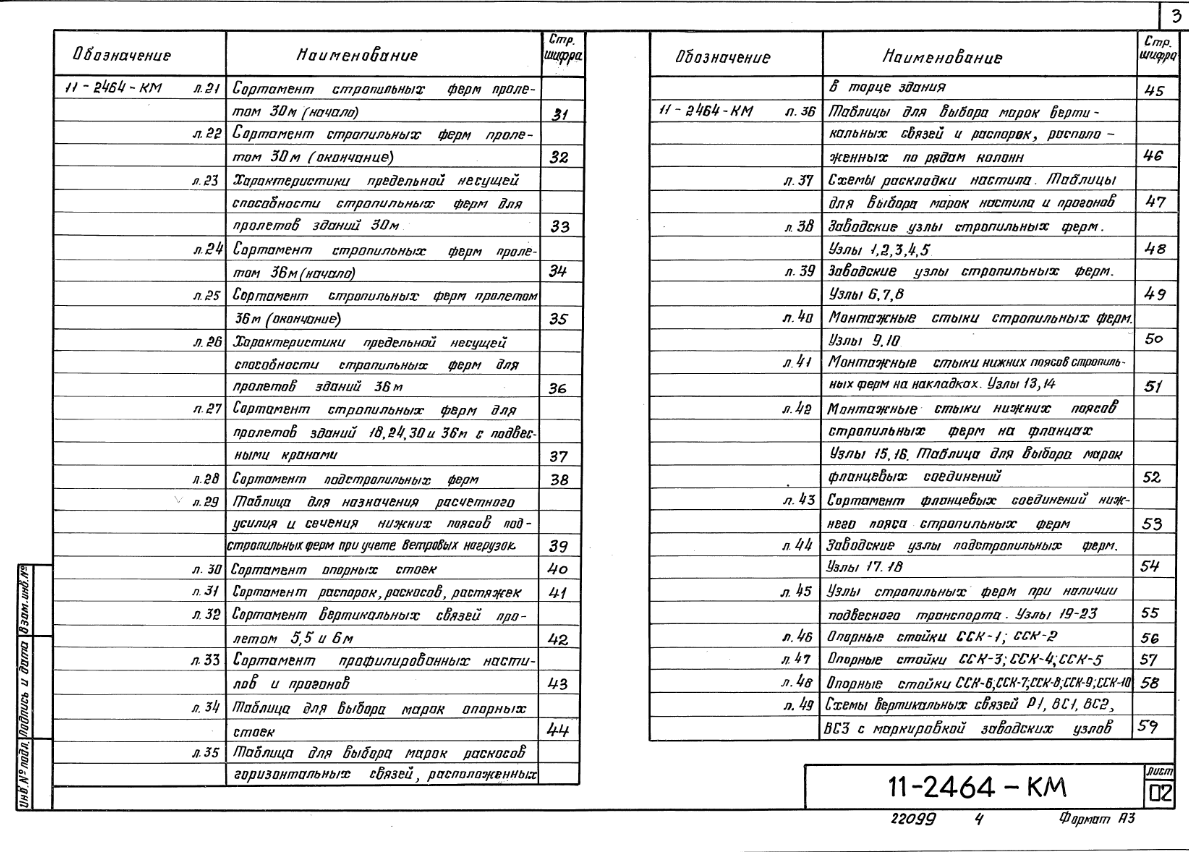 3
Обозначение Наименование Стр. шифра
11-2464-КМ л.21 Сортамент стропильных ферм проле-
том 30м (начало) 31
л.22 Сортамент стропильных ферм проле-
том 30м (окончание) 32
л.23 Характеристики предельной несущей
способности стропильных ферм для
пролетов зданий 30м 33
л.24 Сортамент стропильных ферм проле-
том 36м (начало) 34
л.25 Сортамент стропильных ферм пролетом
36м (окончание) 35
л.26 Характеристики предельной несущей
способности стропильных ферм для
пролетов зданий 36м 36
л.27 Сортамент стропильных ферм для
пролетов зданий 18,24,30 и 36м с подвес-
ными кранами 37
л.28 Сортамент подстропильных ферм 38
л.29 Таблица для назначения расчетного
усилия и сечения нижних поясов под-
стропильных ферм при учете ветровых нагрузок 39
л.30 Сортамент опорных стоек 40
л.31 Сортамент распорок, раскосов, растяжек 41
л.32 Сортамент вертикальных связей про-
летом 5,5 и 6м 42
л.33 Сортамент профилированных насти-
лов и прогонов 43
л.34 Таблица для выбора марок опорных
стоек 44
л.35 Таблица для выбора марок раскосов
горизонтальных связей, расположенных
Обозначение Наименование Стр. шифра
в торце здания 45
11-2464-КМ л.36 Таблицы для выбора марок верти-
кальных связей и распорок, располо-
женных по рядам колонн 46
л.37 Схемы раскладки настила. Таблицы
для выбора марок настила и прогонов 47
л.38 Заводские узлы стропильных ферм.
Узлы 1,2,3,4,5 48
л.39 Заводские узлы стропильных ферм.
Узлы 6,7,8 49
л.40 Монтажные стыки стропильных ферм.
Узлы 9,10 50
л.41 Монтажные стыки нижних поясов стропиль-
ных ферм на накладках. Узлы 13,14 51
л.42 Монтажные стыки нижних поясов
стропильных ферм на фланцах
Узлы 15,16. Таблица для выбора марок
фланцевых соединений 52
л.43 Сортамент фланцевых соединений ниж-
него пояса стропильных ферм 53
л.44 Заводские узлы подстропильных ферм.
Узлы 17.18 54
л.45 Узлы стропильных ферм при наличии
подвесного транспорта. Узлы 19-23 55
л.46 Опорные стойки ССК-1; ССК-2 56
л.47 Опорные стойки ССК-3; ССК-4; ССК-5 57
л.48 Опорные стойки ССК-6; ССК-7; ССК-8; ССК-9; ССК-10 58
л.49 Схемы вертикальных связей Р1, ВС1, ВС2,
ВС3 с маркировкой заводских узлов 59
Инв.№ подл. Подпись и дата Взам.инв.№
11-2464-КМ Лист
02
22099 4 Формат А3